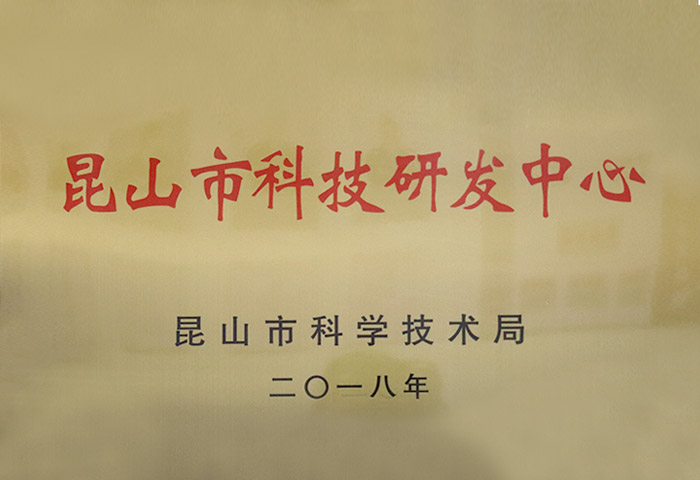 昆山市科技研发中心
昆山市科学技术局
二〇一八年